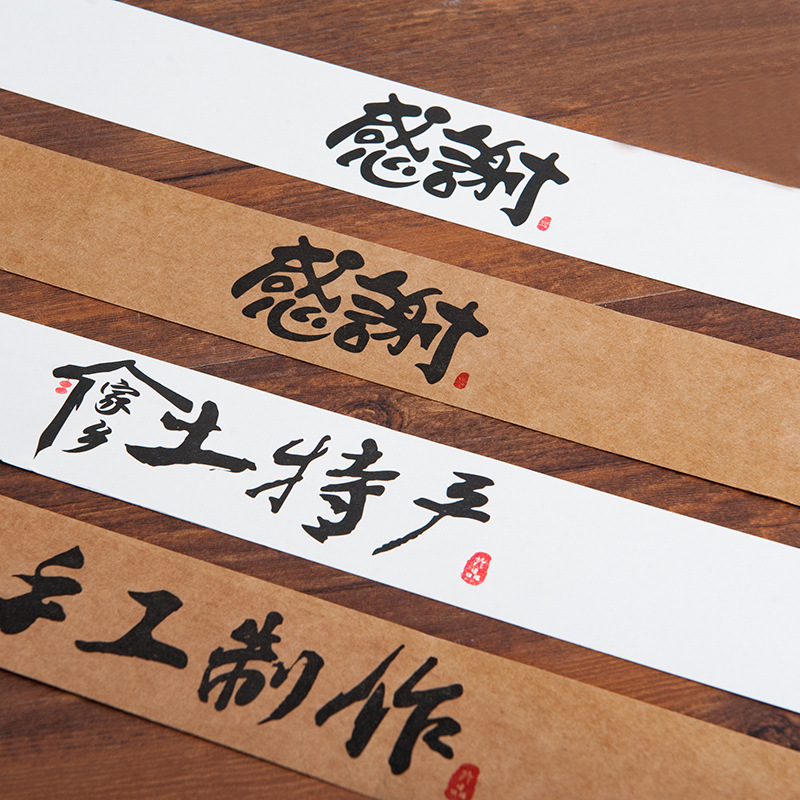 感謝
感謝
家乡土特产
手工制作